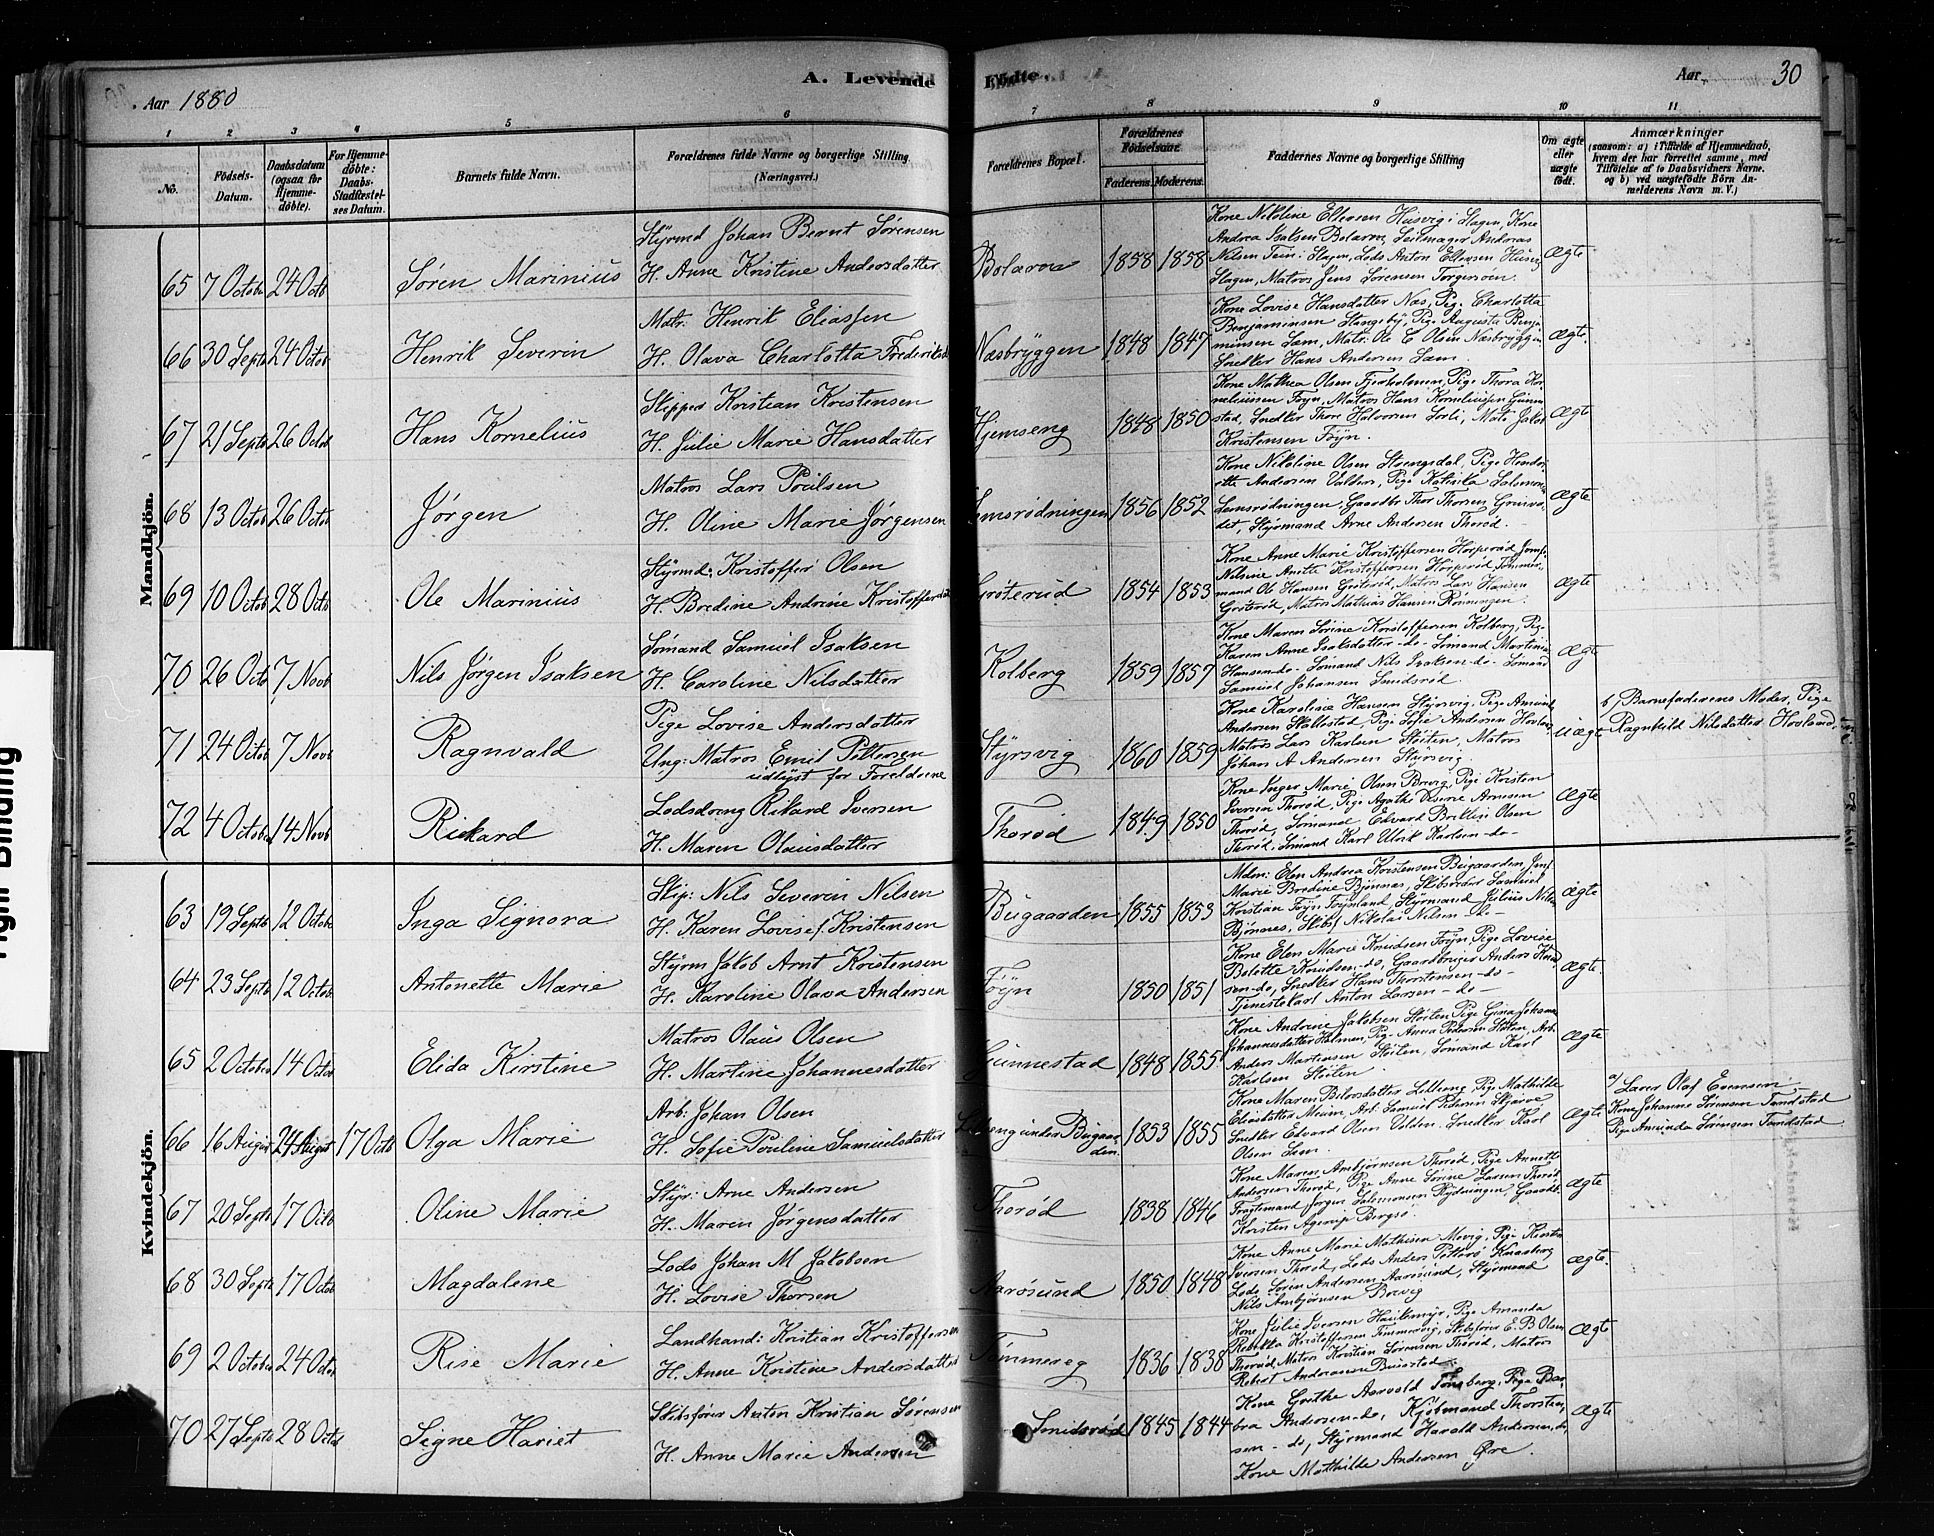 Aar 1880
A. Levende Fødte.
Aar
30
1 2 3 4 5 6 7 8 9 10 11
No.
Födsels-
Datum.
Daabsdatum
(ogsaa for
Hjemme-
døbte).
For Hjemme-
döbte:
Daabs-
Stadfæstel-
ses Datum.
Barnets fulde Navn.
Forældrenes fulde Navne og borgerlige Stilling
(Næringsvei.)
Forældrenes Bopæl.
Forældrenes
Fødselsaar.
Faderens. Moderens.
Faddernes Navne og borgerlige Stilling
Om ægte
eller
uægte
født.
Anmærkninger
(saasom: a) i Tilfælde af Hjemmedaab,
hvem der har forrettet samme, med
Tilføielse af to Daabsvidners Navne.
og b) ved uægtefødte Börn An-
melderens Navn m. V.)
Mandkjön.
65 7 Octobr 24 Octb Søren Marinius
Styrmd Johan Bernt Sørensen
H. Anne Kristine Andersdatter
Bolærne 1858 1858
Kone Nikoline Ellevsen Husvig i Slagen, Kone
Andrea Isaksen Bolærne, Seilmager Andreas
Nilsen Tein i Slagen, Lods Anton Ellevsen Husvig
Slagen, Matros Jens Sørensen Torgersøen.
Ægte
66 30 Septb 24 Octob Henrik Severin
Matr: Henrik Eliassen
H. Olava Charlotta Frederiksd
Næsbryggen 1848 1847
Kone Lovise Hansdatter Næs, Pig. Charlotta
Benjaminsen Stangeby, Pige Augusta Benja
minsen Læm, Matr: Ole C Olsen Næsbryggen
Snedker Hans Andersen Læm.
Ægte.
67 21 Septb 26 Octob Hans Kornelius
Skipper Kristian Kristensen
H. Julie Marie Hansdatter
Hjemseng 1848 1850
Kone Mathea Olsen Fjærholmen, Pige Thora Kor
neliussen Føyn, Matros Hans Korneliussen Gunne
stad, Snedker Thore Halvorsen Sorli, Matr Jakob
Kristensen Føyn.
Ægte
68 13 Octob 26 Octob Jørgen
Matros Lars Poulsen
H. Oline Marie Jørgensen
Lemsrødningen 1856 1852
Kone Nikoline Olsen
Andersen Valden, Pige
Lemsrødningen, Gaardbr Thor Thorsen
Styrmand Arne Andersen Thorød.
Ægte
69 10 Octob 28 Octb Ole Marinius
Styrmd: Kristoffer Olsen
H. Bredine Andrine Kristoffersdat
Grøterud 1854 1853
Kone Anne Marie Kristoffersen Horperød, Jomf
Nilsine Anette Kristoffersen Horperød, Tømmer
mand Ole Hansen Grøterød, Matros Lars Hansen
Grøterød, Matros Mathias Hansen Rønningen.
Ægte
70 26 Octb 7 Novb Nils Jørgen Isaksen
Sømand Samuel Isaksen
H. Caroline Nilsdatter
Kolberg 1859 1857
Kone Maren Sørine Kristoffersen Kolberg, Pige
Karen Anne Isaksdatter-do- Sømand Martinius
Hansen-do- Sømand Nils Isaksen-do- Sømand
Samuel Johansen Smidsrød.
Ægte
71 24 Octob 7 Novb Ragnvald
Pige Lovise Andersdatter
Ung: Matros Emil Pettersen
udlyst for Foreldrene
Styrsvig 1860 1859
Kone Karoline Hansen Styrsvig, Pige Amunda
Andersen Skallestad, Pige Sofie Andersen Hovland
Matros Lars Karlsen Støiten, Matros
Johan A Andersen Styrsvig.
uægte
b/ Barnefaderens Moder, Pige
Ragnhild Nilsdatter Hovland.
72 4 October 14 Novb Rickard
Lodsdreng Rikard Iversen
H. Maren Olausdatter
Thorød 1849 1850
Kone Inger Marie Olsen Brevig, Pige Kirsten
Iversen Thorød, Pige Agathe Arnesen
Thorød, Sømand Edvard Olsen
Thorød, Sømand Karl Ulrik Karlsen-do-
Ægte
Kvindekjön.
63 19 Septb 12 Octob Inga Signora
Skip: Nils Severin Nilsen
H. Karen Lovise f. Kristensen
Bugaarden 1855 1853
Mdm: Elen Andrea Kristensen Bugaarden, Jomf
Marie Bredine Bjønnæs, Skibsreder Samuel
Kristian Føyn Føynland, Styrmand Julius Nilsen
Bjønnes, Skibsf Nikolai Nilsen -do-
Ægte
64 23 Septb 12 Octob Antonette Marie
Styrm Jakob Arnt Kristensen
H. Karoline Olava Andersen
Føyn 1850 1851
Kone Elen Marie Knudsen Føyn, Pige Lovise
Bolette Knudsen-do, Gaardbruger Anders Knud
sen-do, Snedker Hans Thorstensen-do-
Tjenestekarl Anton Larsen-do-
Ægte.
65 2 October 14 Octob Elida Kirstine
Matros Olaus Olsen
H. Martine Johannesdatter
Gunnestad 1848 1855
Kone Andrine Jakobsen Støiten, Pige Gina Johanne
Johannesdatter Holmen, Pig. Anna Pedersen Støiten, Arb.
Anders Martinsen Støiten, Sømand Karl
Karlsen Støiten.
Ægte
66 16 August 24 August 17 Octb Olga Marie
Arb: Johan Olsen
H. Sofie Pouline Samuelsdatter
Lilleeng under Bugaar
den. 1853 1855
Kone Maren Lilleeng, Pige Mathilde
Eliasdatter Meum, Arb. Samuel Pedersen
Snedker Edvard Olsen Valden, Snedker Karl
Olsen Læm.
Ægte
a/ Lærer Olaf Evensen
Kone Johanne Sørensen Tandstad
Pige Amunda Sørensen Tandstad
67 20 Septb 17 Octb Oline Marie
Styr: Arne Andersen
H. Maren Jørgensdatter
Thorød 1838 1846
Kone Maren Ambjørnsen Thorød, Pige Annette
Andersen Thorød, Pige Anne Sørine Larsen Thorød
Fragtemand Jørgen Salomonsen Rydningen, Gaardb.
Kristen Agerup Bergsø.
Ægte
68 30 Septb 17 Octob Magdalene
Lods Johan M Jakobsen
H. Lovise Thorsen
Aarøsund 1850 1848
Kone Anne Marie Mathisen Movig, Pige Kirstin
Iversen Thorød, Lods Anders Petters Knarberg
Lods Søren Andersen Aarøsund, Styrmand
Nils Ambjørnsen Brevig
Ægte.
69 2 October 24 Octob Rise Marie
Landhand: Kristian Kristoffersen
H. Anne Kristine Andersdatter
Tømmereg 1836 1838
Kone Julie Iversen Haukemyr, Pige Amanda
Rebekka Kristoffersen Tømmervig, Skibsfører E. B Olsen
Thorød, Matros Kristian Sørensen Thorød, Matros
Robert Andreasen Buerstad.
Ægte
70 27 Septb 28 Octob Signe Hariet
Skibsfører Anton Kristian Sørensen
H. Anne Marie Andersen
Smidsrød 1845 1844
Kone Grethe Aarvold Tønsberg, Pige Bar
bra Andersen-do, Kjøbmand Thorstein
sen-do, Styrmand Harald Andersen, do,
Kone Mathilde Andersen Øre.
Ægte
Tight Binding